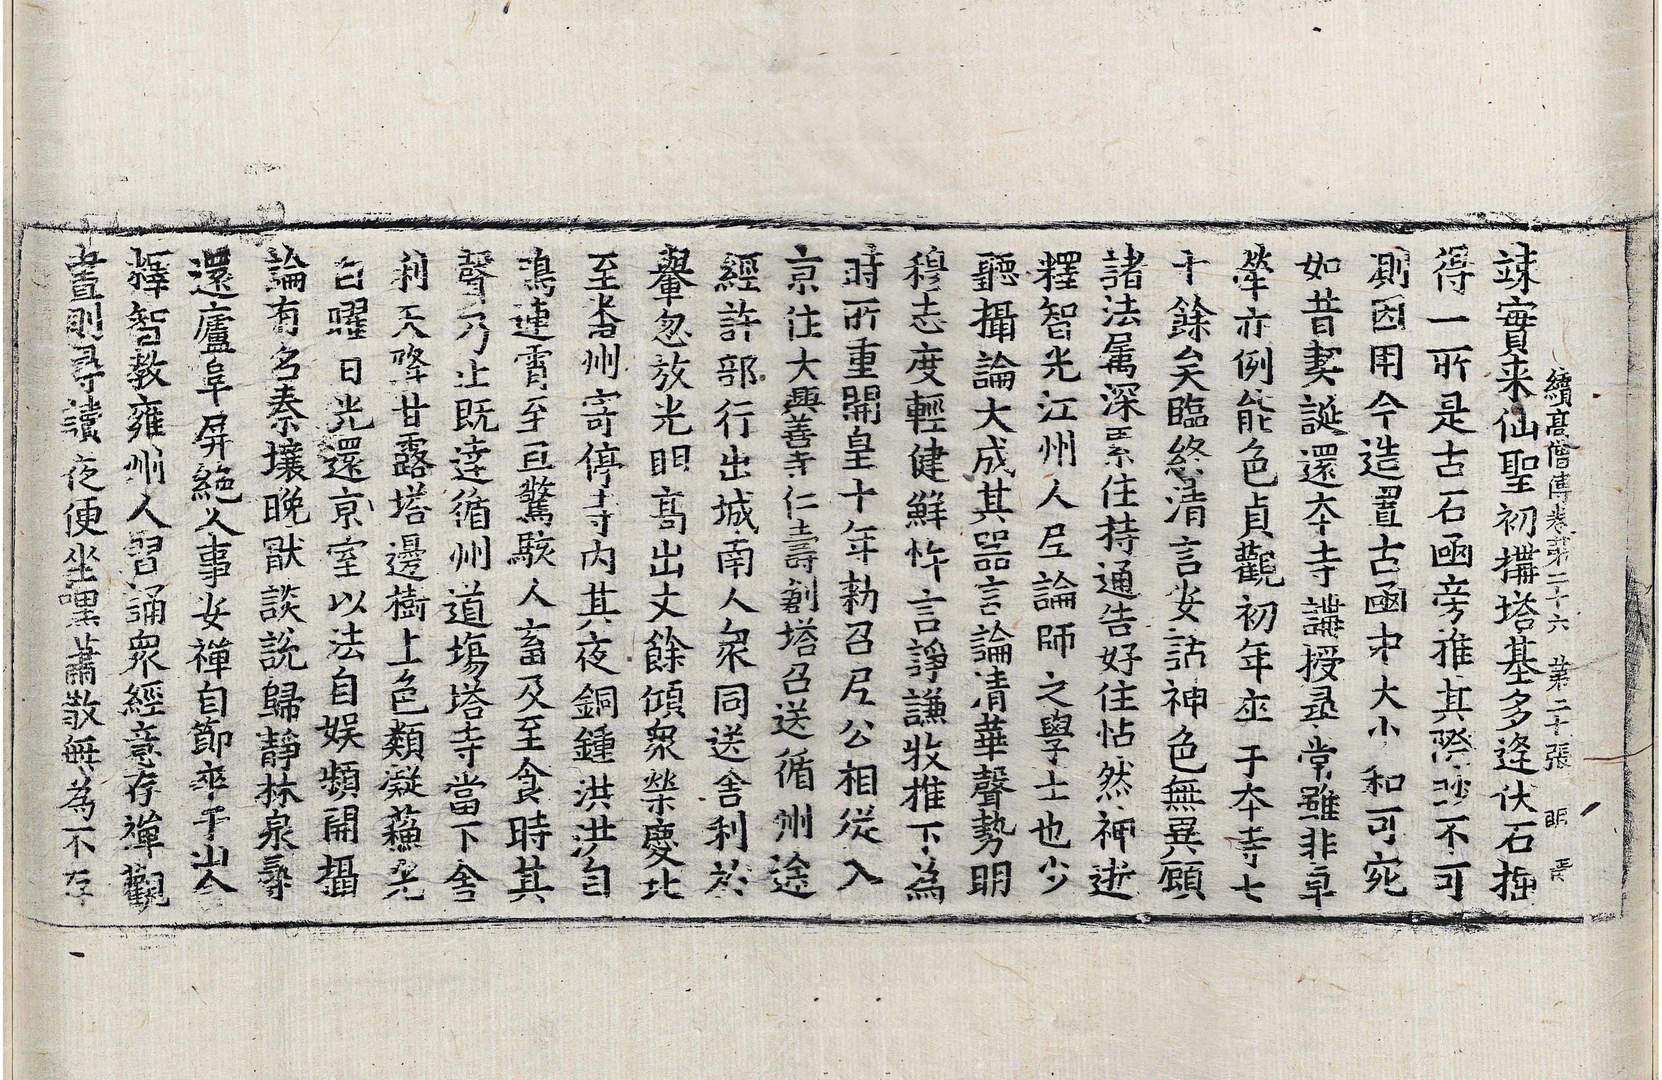 續髙僧傳卷苐二十六　苐二十張　明　
竦實来仙聖初搆塔基多逢伏石掘
得一所是古石函旁推其際眇不可
測因用今造置古函中大小和可宛
如昔契誕還夲寺講授尋常雖非卓
犖亦例能色貞觀初年卒于夲寺七
十餘矣臨終清言安話神色無異顧
諸法属深累住持通告好住怗然神逝
釋智光江州人𡰱論師之學士也少
聽攝論大成其器言論清華聲勢明
穆志度輕健鮮忤言諍謙牧推下為
時所重開皇十年勑召𡰱公相從入
京住大興善寺仁壽創塔召送循州途
經許部行出城南人衆同送舎利於
轝忽放光明髙出丈餘傾衆榮慶北
至番州寄停寺内其夜銅鍾洪洪自
鳴連霄至旦驚駭人畜及至食時其
聲乃止既達循州道塲塔寺當下舎
利天降甘露塔邊樹上色類凝蘓光
白曜日光還京室以法自娱頻開攝
論有名秦壤晚猒談說歸靜林泉尋
還廬阜屏絶人事安禪自節卒于山舎
釋智教雍州人習誦衆經意存禪觀
晝則尋讀夜便坐嘿蕭散無為不存